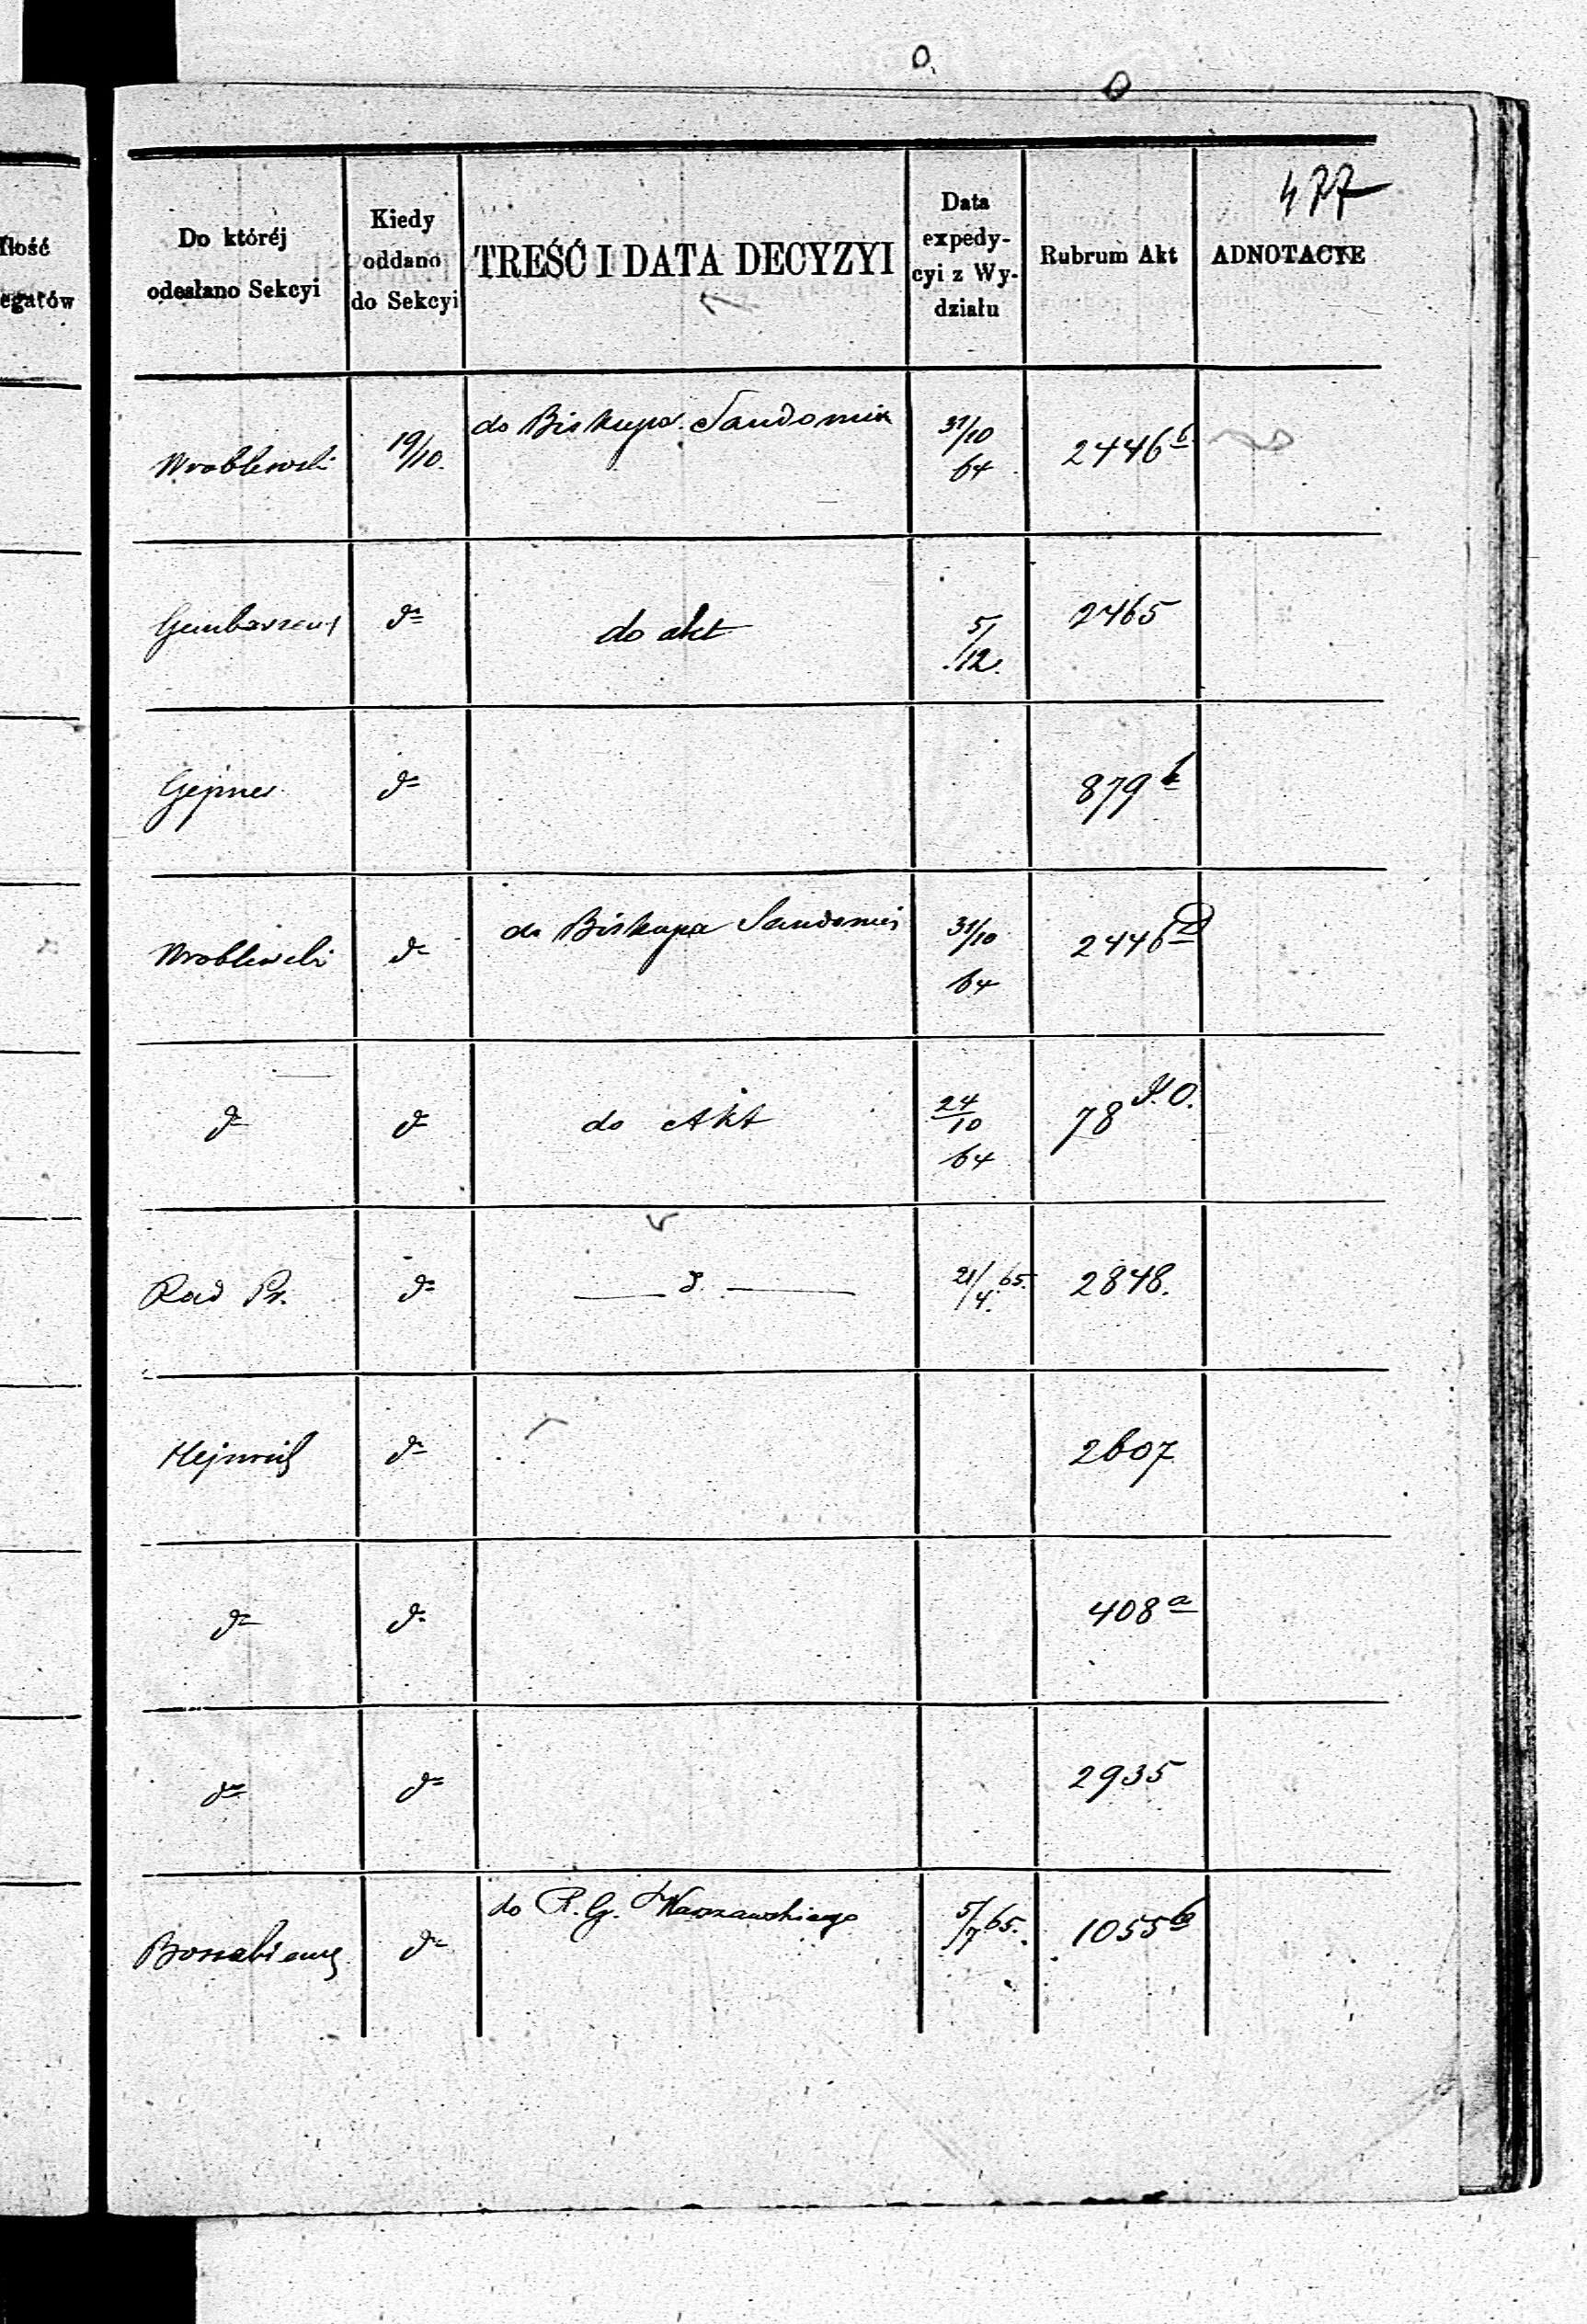 477
Ilość
egatów
Do któréj
odesłano Sekcyi
Kiedy
oddano
do Sekcyi
TREŚĆ I DATA DECYZYI
Data
expedy-
cyi z Wy-
działu
Rubrum Akt
ADNOTACYE
Wroblewski 19/10. do Biskupa Sandomir 31/10 64 2446 b
dn do akt 5/12. 2465
dn 879 b
Wroblewski dn do Biskupa Sandomir 31/10 64 2446
dn dn do Akt 24/10 64 78
Rad Pr. dn — d. — 21/4. 65. 2848.
Hejnrich dn 2607
dn dn 408 a
dn dn 2935
dn do R. G. Warszawskiego 5/7 65. 1055